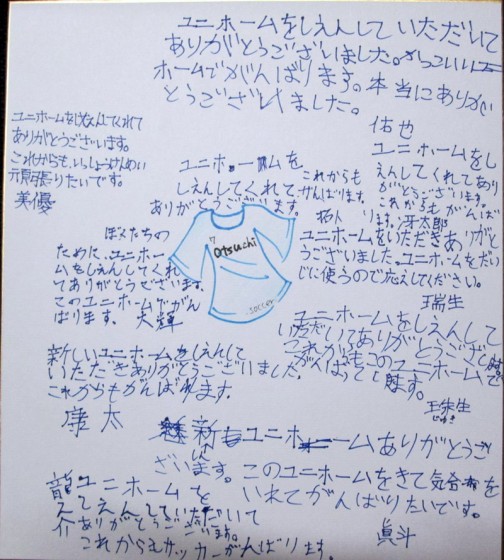 ユニホームをしえんしていただいて
ありがとうございました。かっこいいユニ
ホームでがんばります。本当にありがと
とうございました。
佑也
ユニホームをしえんしてくれて
ありがとうございます。
これからも、いっしょうけんめい
頑張りたいです。
美優
ユニホームを
しえんしてくれて
ありがとうございます。
これからも
がんばります。
拓人
ユニホームをし
えんしてくれてあり
がとうございます。
これからもがんば
ります。牙太郎
Otsuchi
SOCCER
ぼくたちの
ために、ユニホー
ムをしえんしてくれ
てありがとうございます。
このユニホームでがん
ばります。大輝
ユニホームをいただきありがと
うございました。ユニホームをだい
じに使うので応えんしてください。
瑞生
ユニホームをしえんして
いただいてありがとうございました。
これからもこのユニホームで
がんばっ
新しいユニホームをしえんして
いただきありがとうございました。
これからもがんばります。
康太
新しいユニホームありがとうご
ざいます。このユニホームをきて気合を
いれてがんばりたいです。
眞斗
龍之介
ユニホームを
しえんしていただいて
ありがとうございます。
これからもサッカーがんばります。